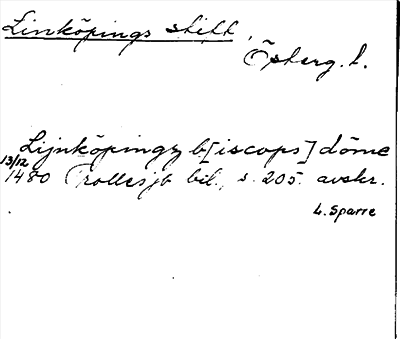 Linköpings stift,
Österg. l.
Lijnköpingz b[iscops] döme
13/12
1480 Trollesjb bil., s. 205. avskr.
L. Sparre